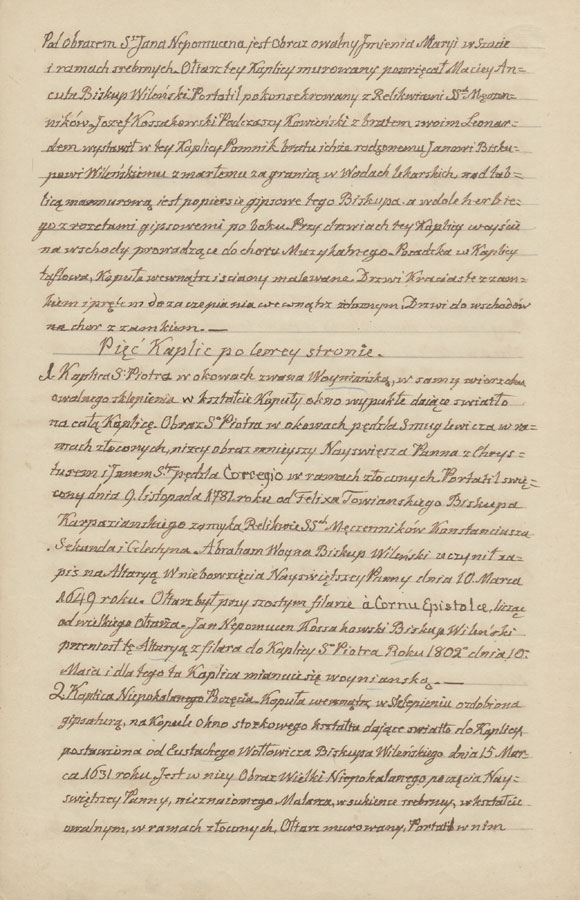 Pod obrazem Sgo Jana Nepomucena jest obraz owalny Imienia Maryi w Szacie
i ramach srebrnych. Ołtarz tey Kaplicy murowany poświęcał Maciey An=
cuta Biskup Wileński Portatil pokonsekrowany z Relikwiami SSch Męczen=
ników. Jozef Kossakowski Podczaszy Kowieński z bratem swoim Leonar=
dem wystawił w tey Kaplicy Pomnik bratu ichże rodzonemu Janowi Bisku=
powi Wileńskiemu zmarłemu za granicą w Wodach lekarskich nad tab=
licą marmurową jest popiersie gipsowe tego Biskupa a w dole herb te=
go z rozetami gipsowemi po boku. Przy drzwiach tey Kaplicy wyiście
na wschody prowadzące do choru Muzykalnego. Posadzka w Kaplicy
taflowa, Kopuła wewnątrz i sciany malowane. Drzwi Kraciaste z zam=
kiem i prętem do zaczepiania wewnątrz Drzwi do wschodów
na chor z zamkiem. —
Pięć Kaplic po lewey stronie.
1. Kaplica Sgo Piotra w okowach zwana Woyniańską, w samym wierzchu
owalnego sklepienia w kształcie Kopuły okno wypukłe daiące swiatło
na całą Kaplicę. Obraz Sgo Piotra w okowach pędzla Smuglewicza w ra=
mach złoconych, niżey obraz mnieyszy Nayswięsza Panna z Chrys=
tusem i Janem Stym pędzla Corcegio w ramach złoconych. Portatil swię=
cony dnia 9. listopada 1781 roku od Felixa Towiańskiego Biskupa
Karpazianskiego zamyka Relikwie SSch Męczenników Konstanciusza
Sekunda i Celestyna. Abraham Woyna Biskup Wileński uczynił za=
pis na Altaryą Wniebowzięcia Nayswiętszey Panny dnia 10. Marca
1649 roku. Ołtarz był przy szostym filarze à Cornu Epistolce, licząc
od wielkiego Ołtarza. Jan Nepomucen Kossakowski Biskup Wileński
przeniosł tę Altaryą z filara do Kaplicy Sgo Piotra Roku 1802 dnia 10.
Maia i dla tego ta Kaplica mianuie się woyniańską. —
2. Kaplica Niepokalanego Poczęcia. Kopuła wewnątrz w Sklepieniu ozdobiona
gipsaturą, na Kopule okno stożkowego kształtu daiące swiatło do Kaplicy,
postawiona od Eustachego Wołłowicza Biskupa Wileńskiego dnia 15. Mar=
ca 1631 roku. Jest w niey Obraz Wielki Niepokalanego poczęcia Nay=
swiętszey Panny, nieznaiomego Malarza, w sukience srebrney, w kształcie
owalnym, w ramach złoconych, Ołtarz murowany, Portatil w nim